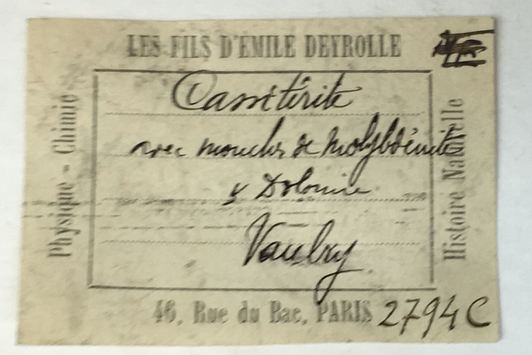 LES FILS D'ÉMILE DEYROLLE
Physique - Chimie
Cassitérite
avec mouches de Molybdénite
& Dolomie
Vaulry
Histoire Naturelle
46, Rue du Bac, PARIS
2794C